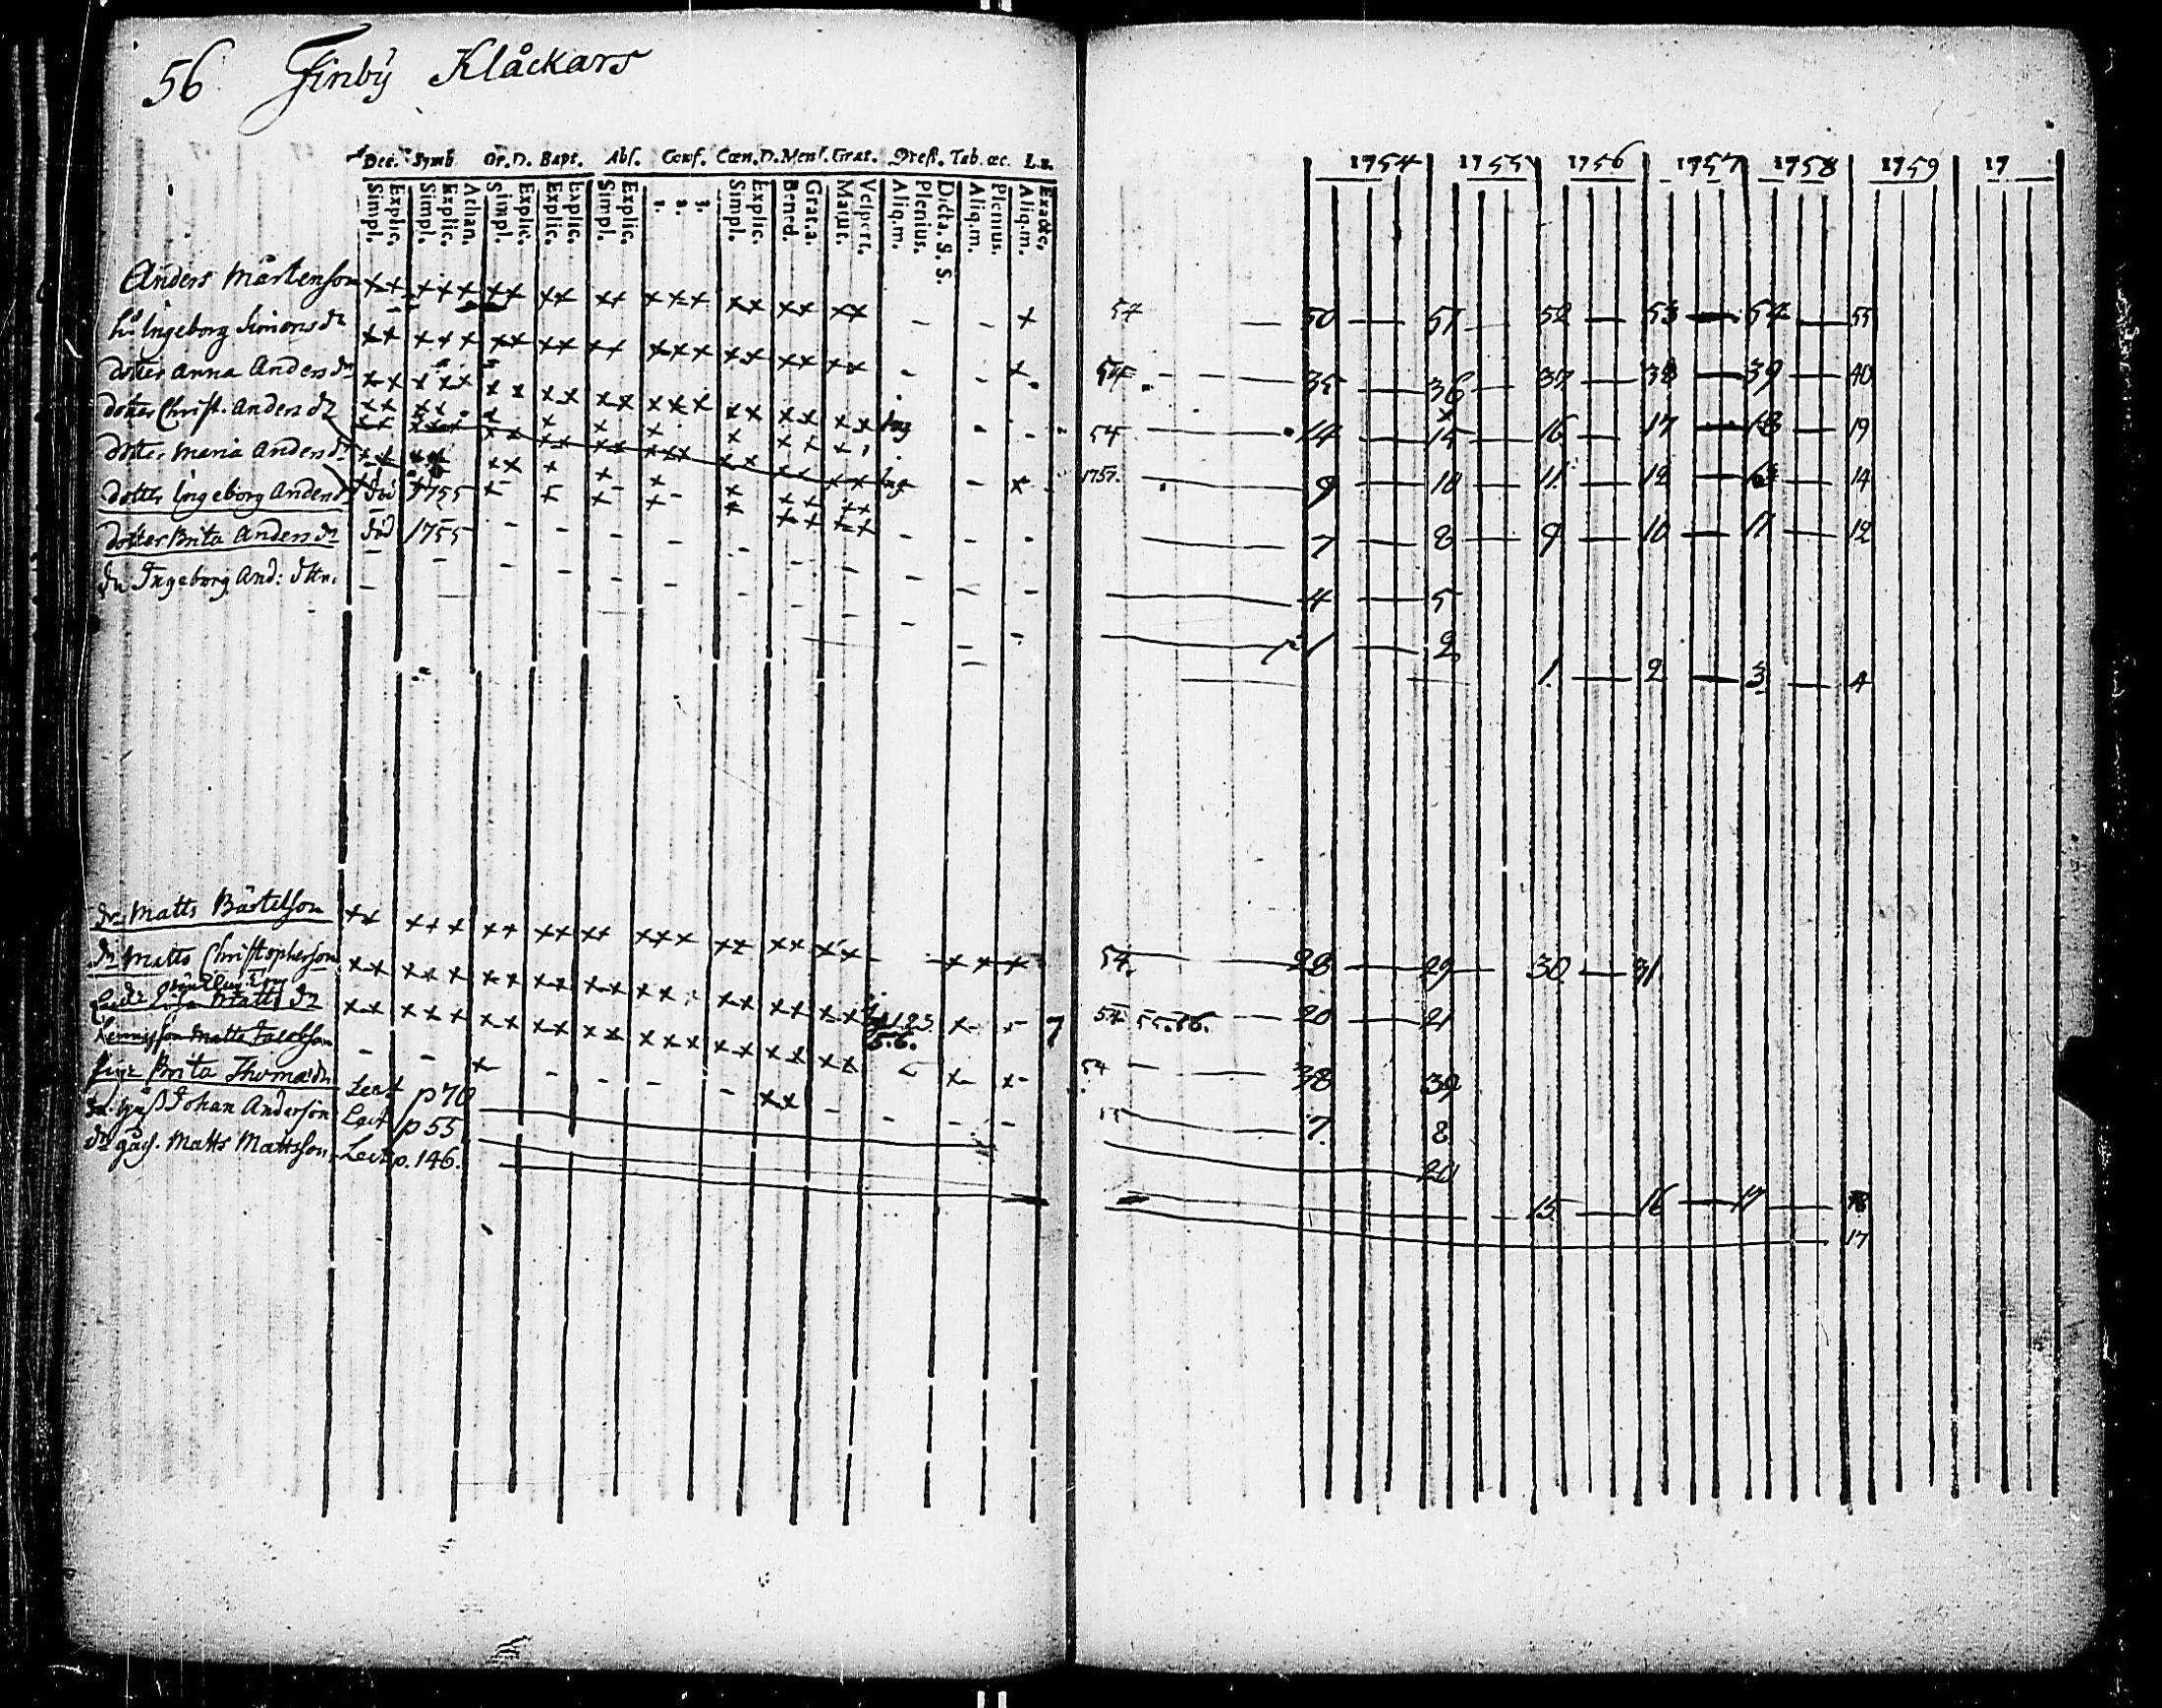 56 Finby Klåckars
Dec. Symb. Or. D. Bapt. Abs. Conf. Cœn. D. Mens. Grat. Præst. Tab. œc. L. 2.
Simpl. Explic. Simpl. Explic. Athan. Simpl. Explic. Explic. Explic. Simpl. Explic. 1. 2. 3. Simpl. Explic. Bened. Grat.a. Matut. Vespert. Aliq.m. Plenius. Dicta. S. S. Aliq.m. Plenius. Aliq.m. Exacte.
1754 1755 1756 1757 1758 1759 17
Anders Mårtenson 54 50 51 52 53 54 55
hu Ingeborg Simonsdr 54 35 36 37 38 39 40
dotter Anna Andersdr 54 14 15 16 17 18 19
dotter Christ. Andersdr 1757. 9 10 11 12 13 14
dotter Maria Andersdr 7 8 9 10 11 12
dotter Ingeborg Anders död 1755 4 5
dotter Brita Andersdr död 1755 1 2
dr Ingeborg And: dttr. 1 2 3 4
dr Matts Bärtelson 54. 28 29 30 31
dr Matts Christopherson 54 55.56. 20 21
Matts dr 54 38 39
Matts Jacobson 7. 8
Brita Thomædr Lect p 70 20
Johan Anderson Lect p 55 15 16 17 18
dr Matts Mattsson Lect p. 146. 17